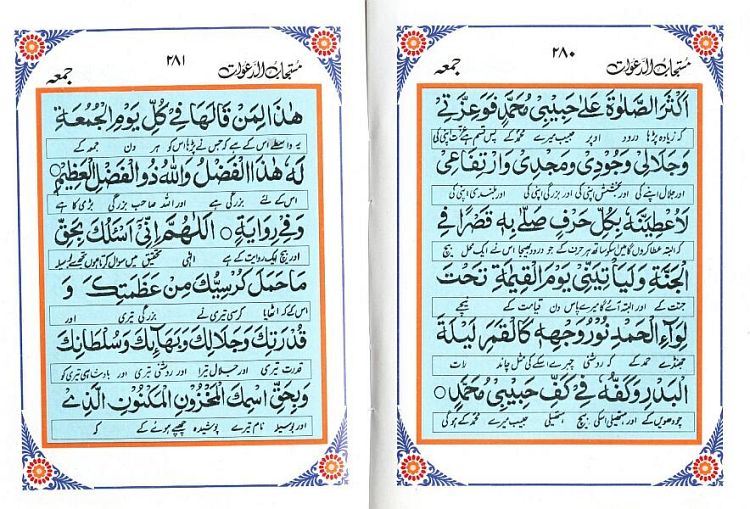 ٢٨٠
مستجاب الدعوات
جمعہ
اَكْثَرَ الصَّلٰوةَ عَلٰى حَبِيْبِىْ مُحَمَّدٍ فَوَعِزَّتِىْ
کہ زیادہ پڑھا درود اوپر حبیب میرے محمدؐ کے پس قسم ہے عزت اپنی کی
وَجَلَالِىْ وَجُوْدِىْ وَمَجْدِىْ وَارْتِفَاعِىْ
اور جلال اپنے کی اور بخشش اپنی کی اور بزرگی اپنی کی اور بلندی اپنی کی
لَاُعْطِيَنَّهٗ بِكُلِّ حَرْفٍ صَلّٰى بِهٖ قَصْرًا فِى
کہ البتہ عطا کروں گا میں اسکو ساتھ ہر حرف کے جو درود بھیجا اس نے ایک محل بیچ
الْجَنَّةِ وَلَيَاْتِيَنِّىْ يَوْمَ الْقِيٰمَةِ تَحْتَ
جنت کے اور البتہ آئے گا میرے پاس دن قیامت کے نیچے
لِوَآءِ الْحَمْدِ نُوْرُ وَجْهِهٖ كَالْقَمَرِ لَيْلَةَ
جھنڈے حمد کے روشنی چہرے اسکے کی مثل چاند رات
الْبَدْرِ وَكَفُّهٗ فِىْ كَفِّ حَبِيْبِىْ مُحَمَّدٍ
چودھویں کے اور ہتھیلی اسکی بیچ ہتھیلی حبیب میرے محمدؐ کے ہوگی
٢٨١
مستجاب الدعوات
جمعہ
هٰذَا لِمَنْ قَالَهَا فِىْ كُلِّ يَوْمِ الْجُمُعَةِ
یہ واسطے اس کے ہے کہ جس نے پڑھا اس کو ہر دن جمعہ کے
لَهٗ هٰذَا الْفَضْلُ وَاللّٰهُ ذُو الْفَضْلِ الْعَظِيْمِ
اس کے لئے بزرگی ہے اور اللہ صاحب بزرگی بڑی کا ہے
وَفِىْ رِوَايَةٍ اَللّٰهُمَّ اِنِّىْ اَسْئَلُكَ بِحَقِّ
اور بیچ ایک روایت کے ہے الٰہی تحقیق میں سوال کرتا ہوں تجھ سے بوسیلہ
مَا حَمَلَ كُرْسِيُّكَ مِنْ عَظَمَتِكَ وَ
اس کے کہ اٹھایا کرسی تیری نے بزرگی تیری اور
قُدْرَتِكَ وَجَلَالِكَ وَبَهَآئِكَ وَسُلْطَانِكَ
قدرت تیری اور جلال تیرا اور روشنی تیری اور بادشاہی تیری کو
وَبِحَقِّ اسْمِكَ الْمَخْزُوْنِ الْمَكْنُوْنِ الَّذِىْ
اور بوسیلہ نام تیرے پوشیدہ چھپے ہونے کے کہ